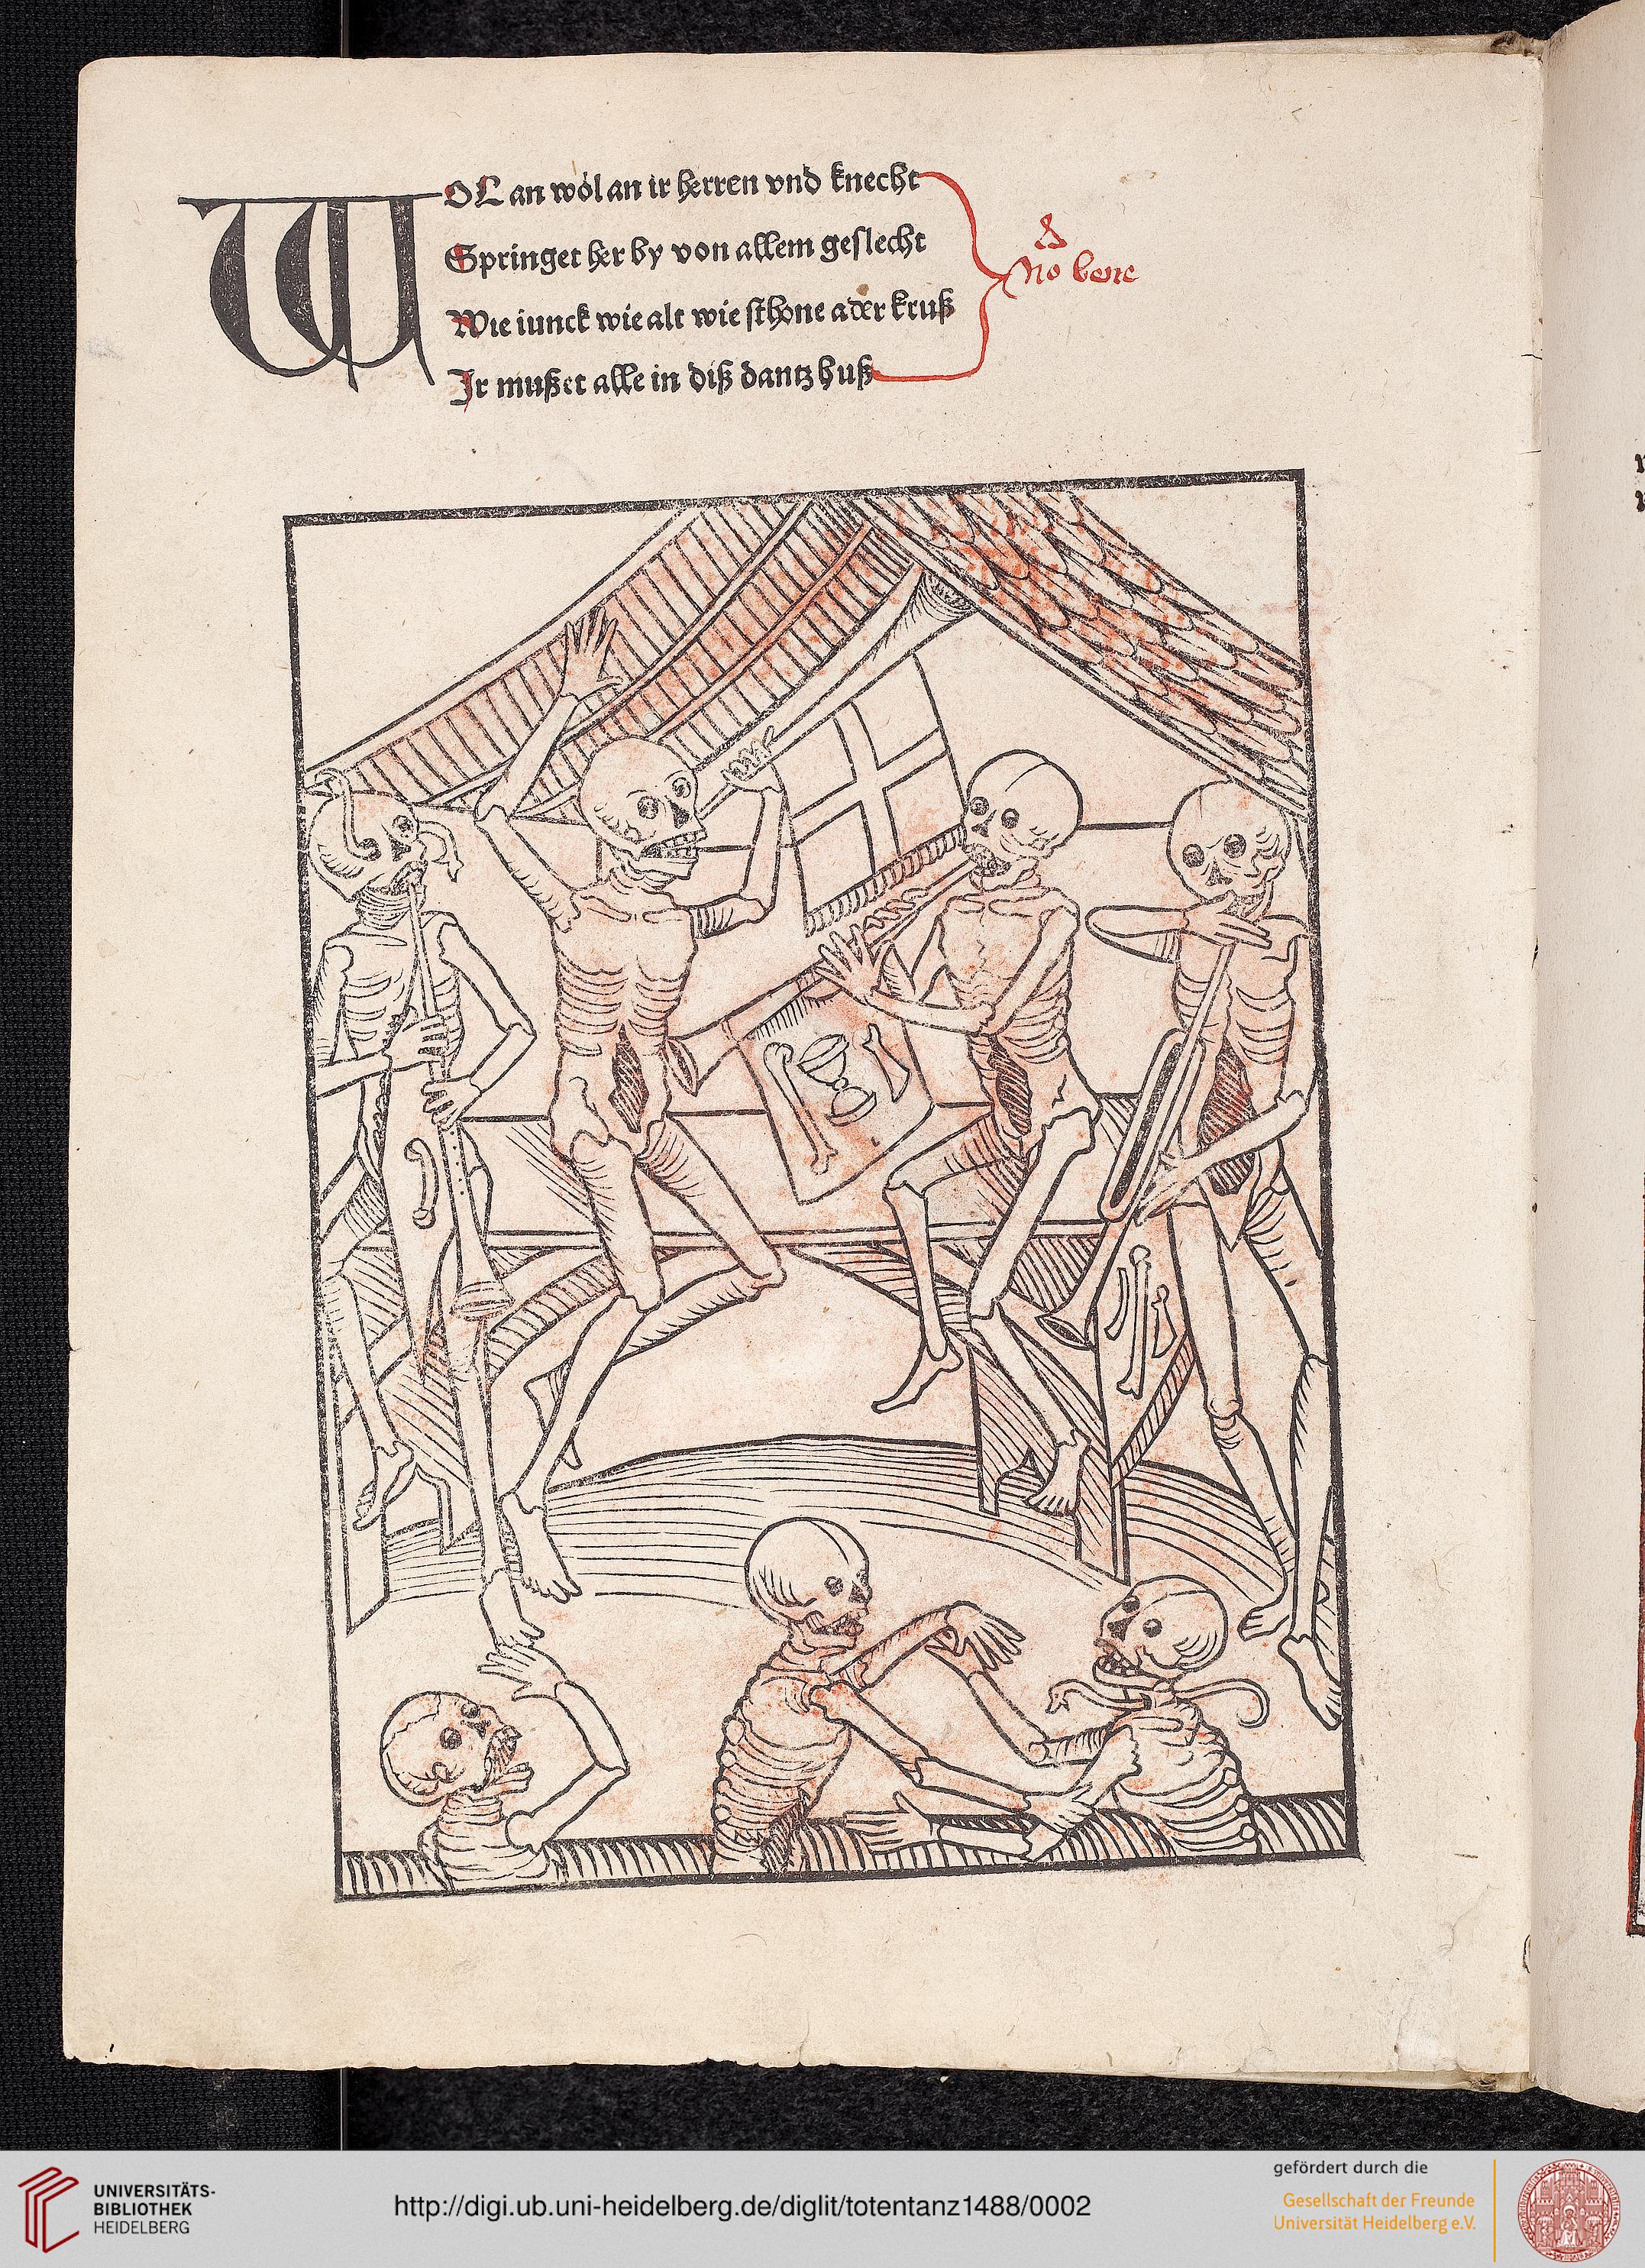 WOL an wol an ir herren vnd knecht
Springet her by von allem geslecht
Wie iunck wie alt wie schone ader kruß
Ir mußet alle in diß dantz huß
No bene
UNIVERSITÄTS-
BIBLIOTHEK
HEIDELBERG
http://digi.ub.uni-heidelberg.de/diglit/totentanz1488/0002
gefördert durch die
Gesellschaft der Freunde
Universität Heidelberg e.V.